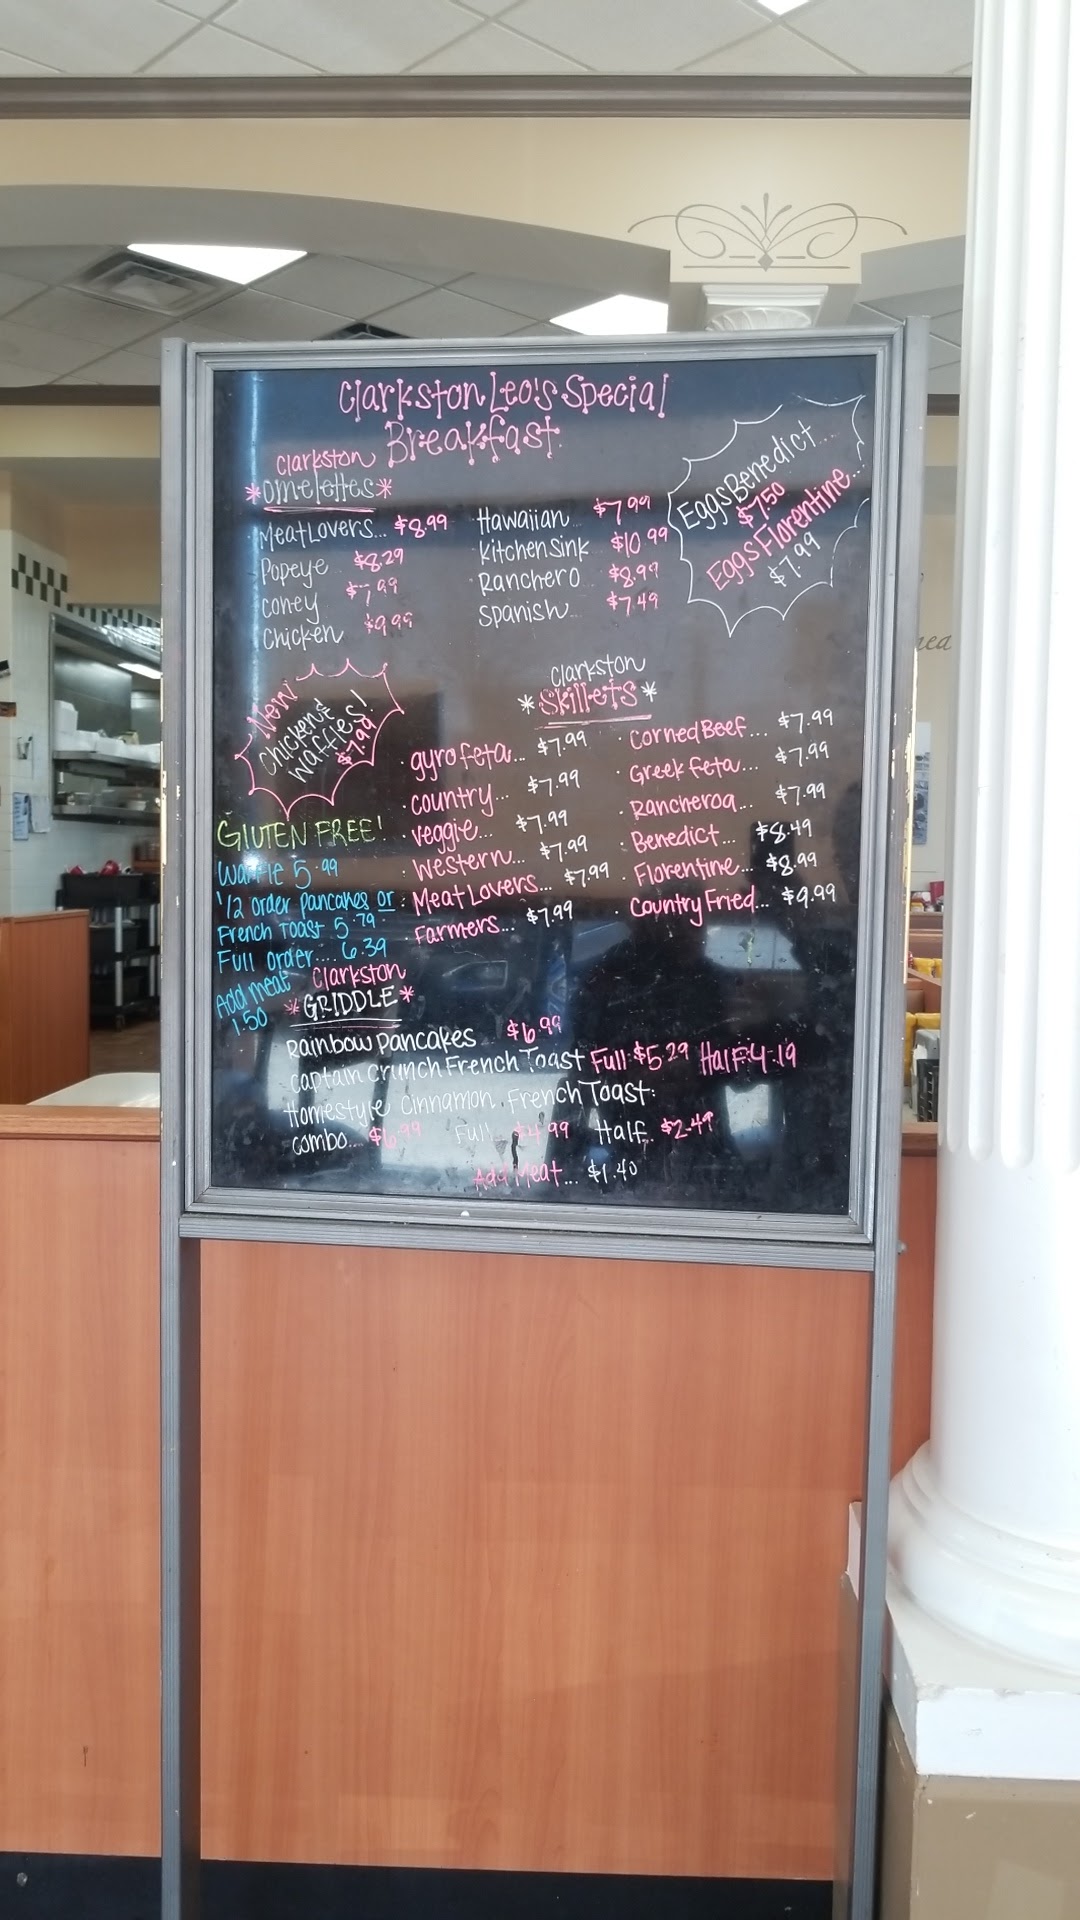 Clarkston Leo's Special
Breakfast
Clarkston
*Omelettes*
MeatLovers... $8.99
Popeye $8.29
Coney $7.99
Chicken $9.99
Hawaiian... $7.99
Kitchen Sink $10.99
Ranchero $8.99
Spanish... $7.49
Eggs Benedict...
$7.50
Eggs Florentine...
$7.99
New
Chicken &
Waffles!
$7.99
Clarkston
*Skillets*
· gyro feta... $7.99
· Country... $7.99
· Veggie... $7.99
· Western... $7.99
· Meat Lovers... $7.99
· Farmers... $7.99
· Corned Beef... $7.99
· Greek Feta... $7.99
· Rancheroa... $7.99
· Benedict... $8.49
· Florentine... $8.99
· Country Fried... $9.99
GLUTEN FREE!
Waffle 5.99
1/2 order pancakes or
French Toast 5.79
Full order.... 6.39
Add meat
1.50
Clarkston
*GRIDDLE*
Rainbow Pancakes $6.99
Captain Crunch French Toast Full: $5.29 Half: 4.19
Homestyle Cinnamon French Toast:
Combo... $6.99 Full $4.99 Half.. $2.49
Add Meat... $1.40